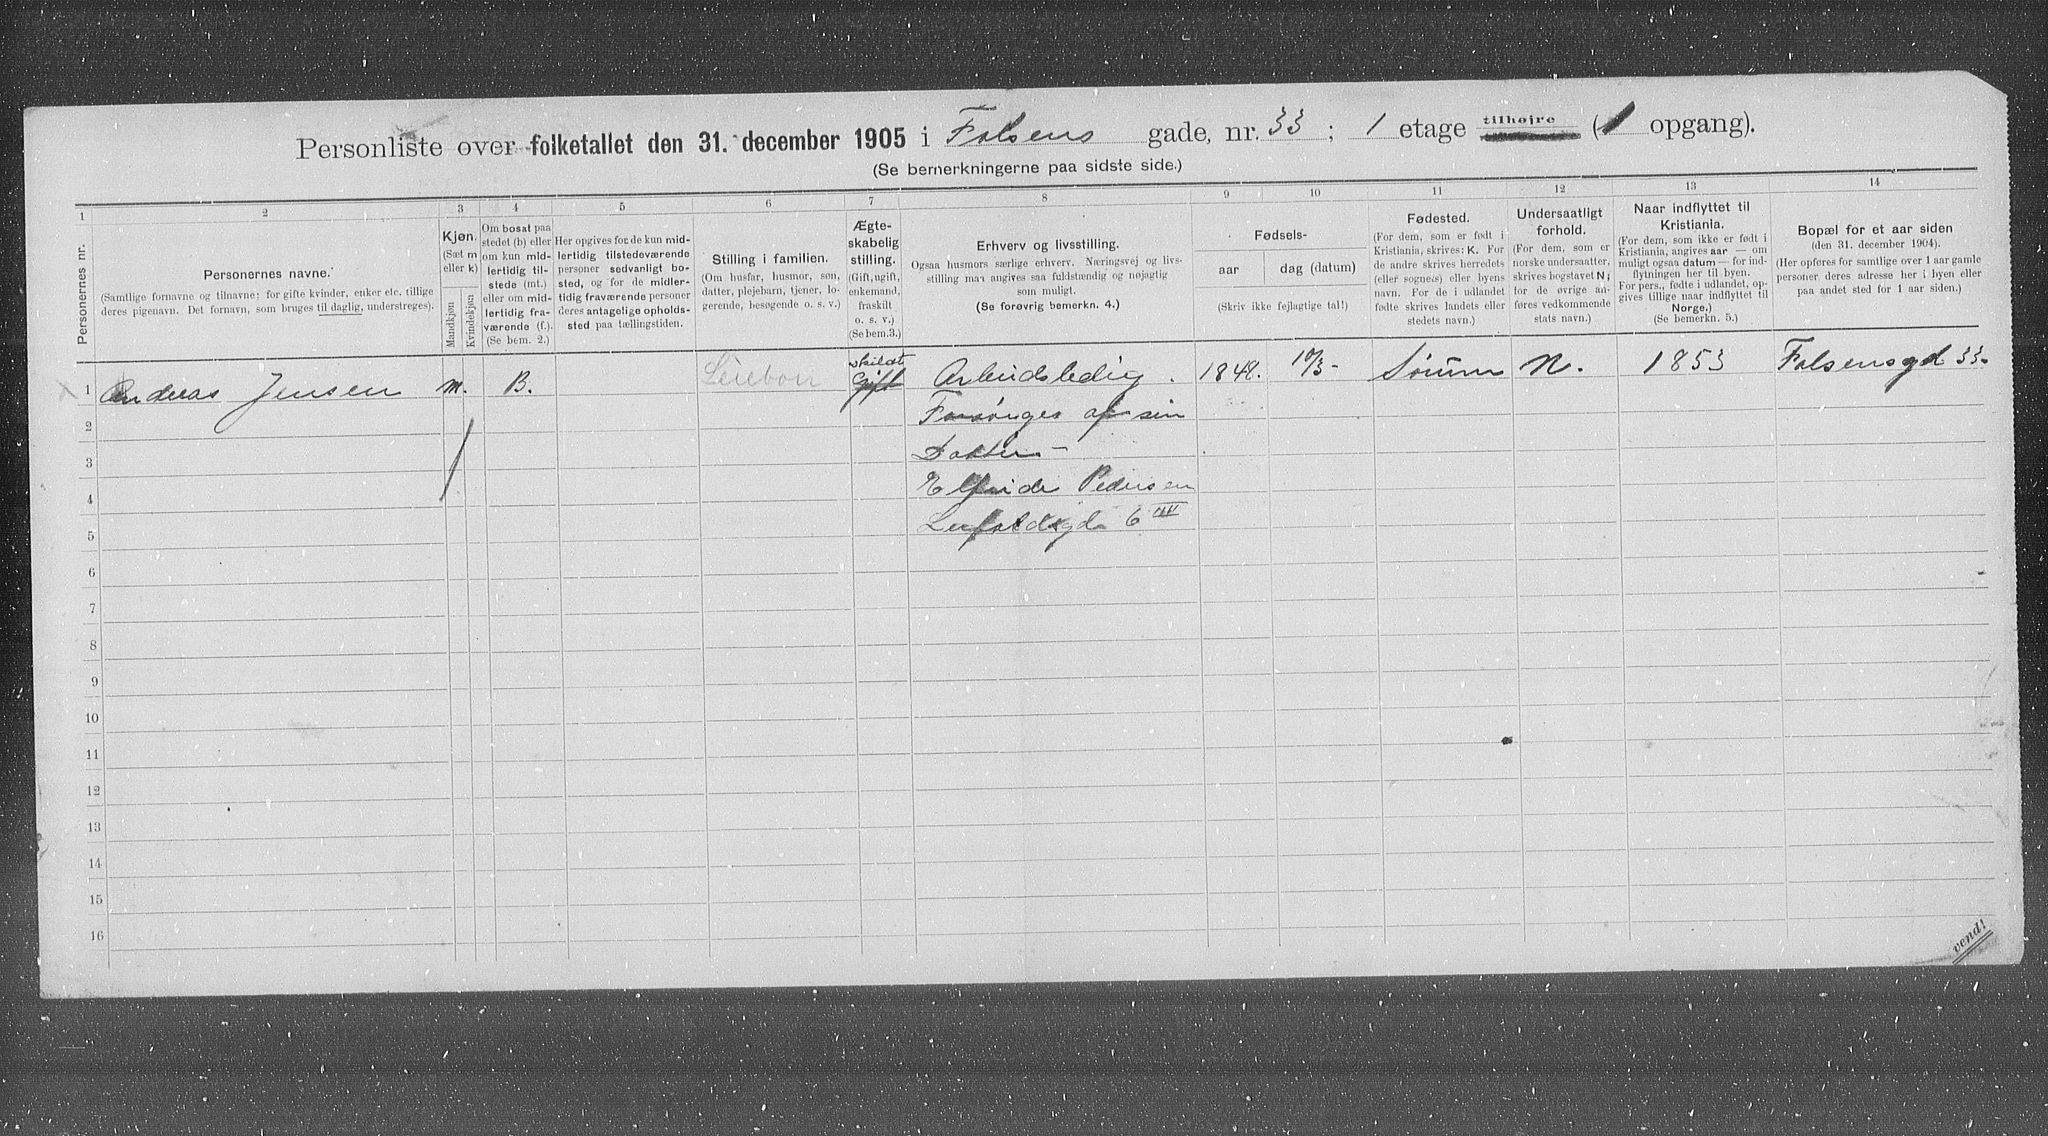 Personliste over folketallet den 31. december 1905 i Falsens gade, nr. 33; 1 etage tilhøjre (1 opgang).
(Se bemerkningerne paa sidste side.)
1 2 3 4 5 6 7 8 9 10 11 12 13 14
Personernes nr.
Personernes navne.
(Samtlige fornavne og tilnavne; for gifte kvinder, enker etc. tillige
deres pigenavn. Det fornavn, som bruges til daglig, understreges).
Kjøn.
(Sæt m
eller k)
Mandkjøn
Kvindekjøn
Om bosat paa
stedet (b) eller
om kun mid-
lertidig til-
stede (mt.)
eller om mid-
lertidig fra-
værende (f.).
(Se bem. 2.)
Her opgives for de kun mid-
lertidig tilstedeværende
personer sedvanligt bo-
sted, og for de midler-
tidig fraværende personer
deres antagelige opholds-
sted paa tællingstiden.
Stilling i familien.
(Om husfar, husmor, søn,
datter, plejebarn, tjener, lo-
gerende, besøgende o. s. v.)
Ægte-
skabelig
stilling.
(Gift, ugift,
enkemand,
fraskilt
o. s. v.)
(Se bem.3.)
Erhverv og livsstilling.
Ogsaa husmors særlige erhverv. Næringsvej og livs-
stilling maa angives saa fuldstændig og nøjagtig
som muligt.
(Se forøvrig bemerkn. 4.)
Fødsels-
aar
dag (datum)
(Skriv ikke fejlagtige tal!)
Fødested.
(For dem, som er født i
Kristiania, skrives: K. For
de andre skrives herredets
(eller sognets) eller byens
navn. For de i udlandet
fødte skrives landets eller
stedets navn.)
Undersaatligt
forhold.
(For dem, som er
norske undersaatter,
skrives bogstavet N;
for de øvrige an-
føres vedkommende
stats navn.)
Naar indflyttet til
Kristiania.
(For dem, som ikke er født i
Kristiania, angives aar — om
muligt ogsaa datum — for ind-
flytningen her til byen.
For pers., fødte i udlandet, op-
gives tillige naar indflyttet til
Norge.)
(Se bemerkn. 5.)
Bopæl for et aar siden
(den 31. december 1904).
(Her opføres for samtlige over 1 aar gamle
personer deres adresse her i byen eller
paa andet sted for 1 aar siden.)
1 Andreas Jensen m. B. Leiebor skildt Gift Arbeidsledig. 1848. 10/3- Sørum N. 1853 Falsensgd 33.
2 Forsørges af sin
3 Datter -
4 Elfride Pedersen
5 6 III
6
7
8
9
10
11
12
13
14
15
16
vend!